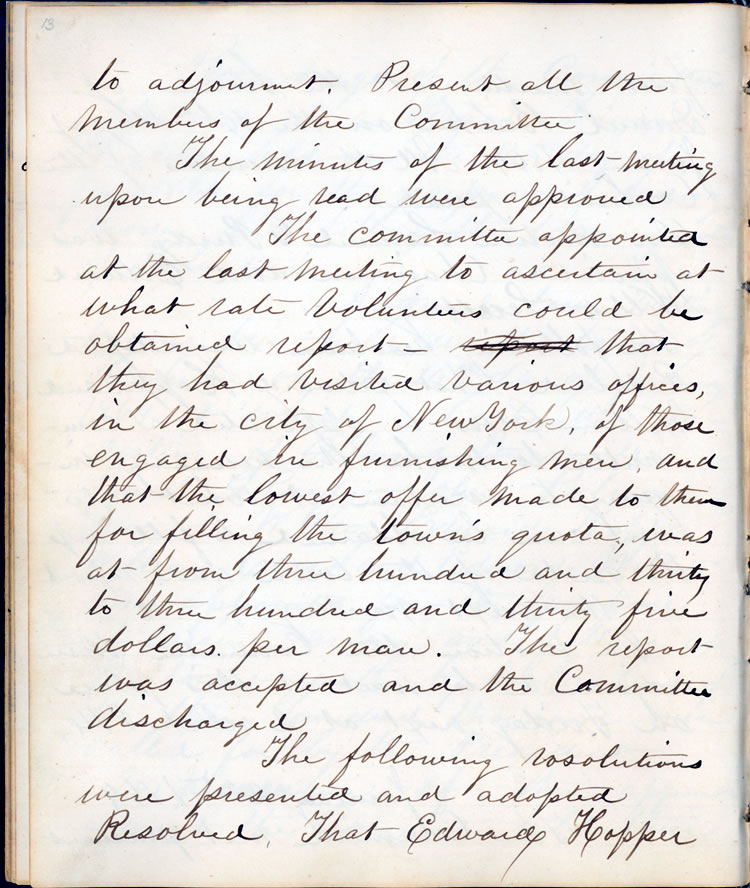 13
to adjournmt. Present all the
members of the Committee
The minutes of the last meeting
upon being read were approved
The committee appointed
at the last meeting to ascertain at
what rate Volunteers could be
obtained report – report that
they had visited various offices,
in the city of New York, of those
engaged in furnishing men, and
that the lowest offer made to them
for filling the town's quota, was
at from three hundred and thirty
to three hundred and thirty five
dollars. per man. The report
was accepted and the Committee
discharged
The following resolutions
were presented and adopted
Resolved, That Edward Hopper